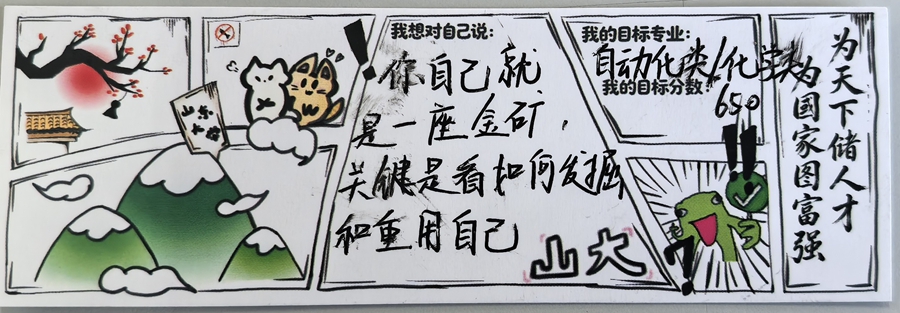 山东
大学
我想对自己说:
你自己就
是一座金矿，
关键是看如何发掘
和重用自己
山大
我的目标专业:
自动化类/化学类
我的目标分数:
650
为天下储人才
为国家图富强